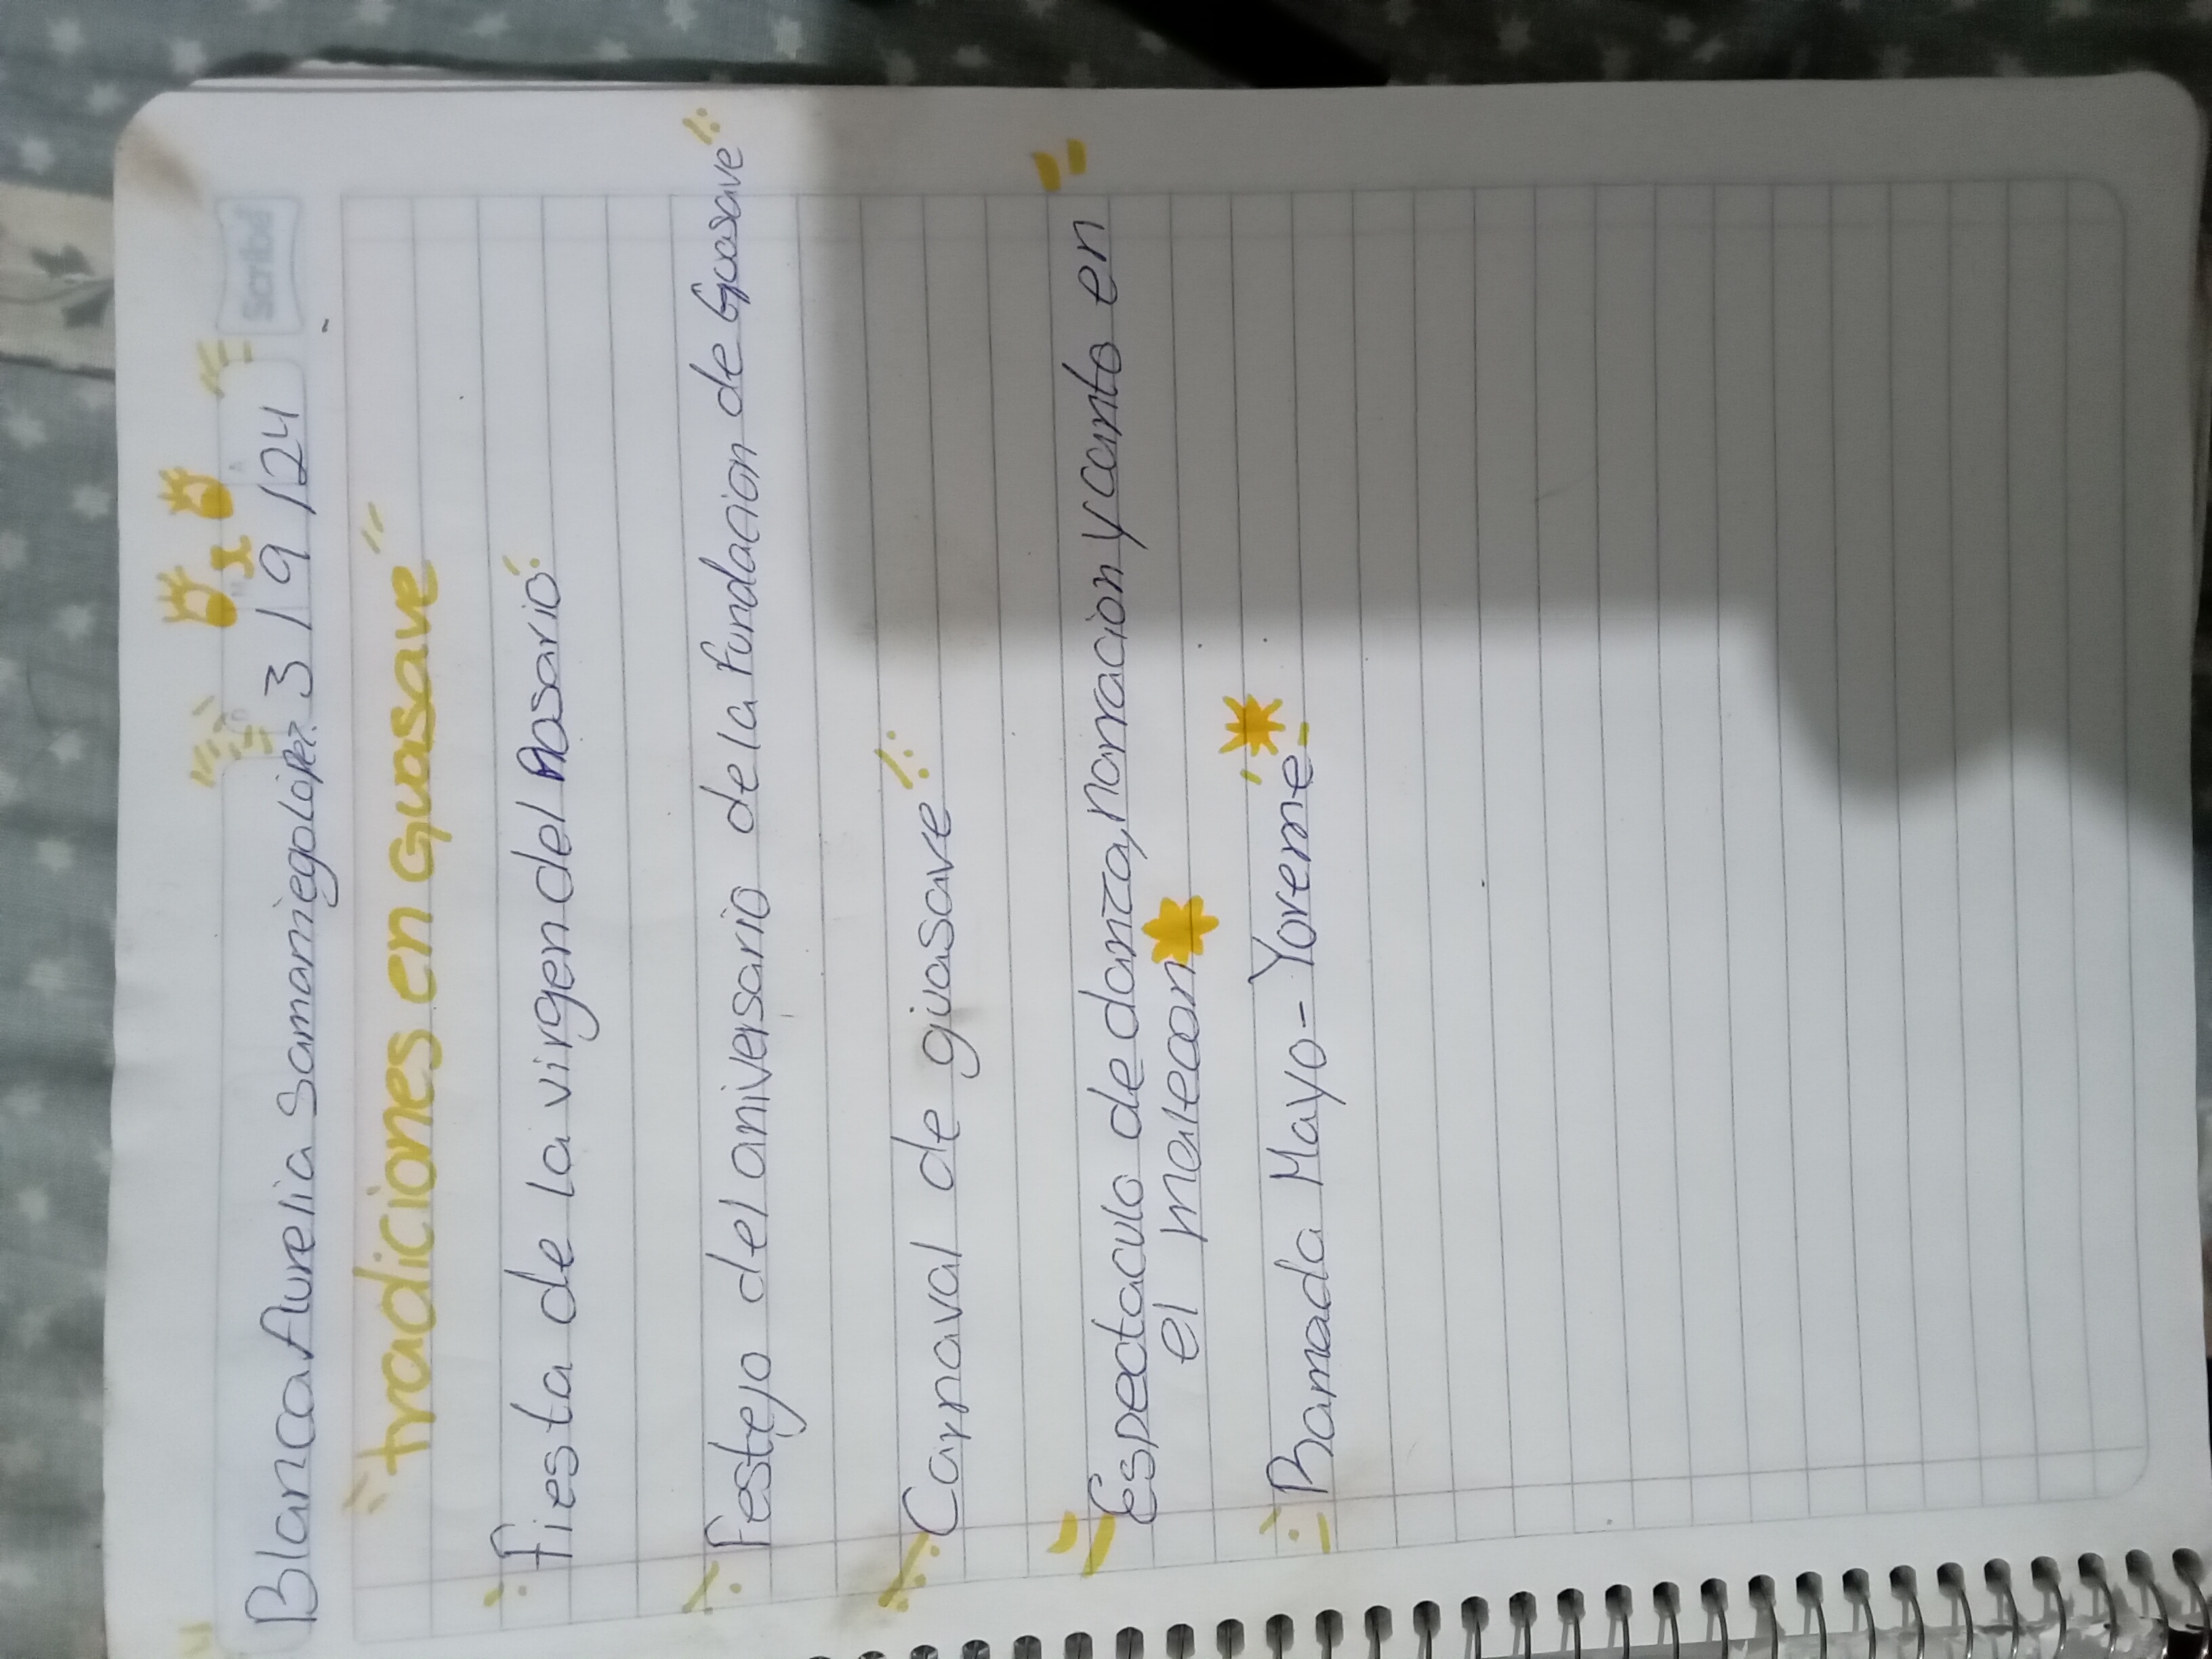 Scribe
Blanca Aurelia Samaniego lopez. 3 / 9 / 24
"tradiciones en Guasave"
Fiesta de la virgen del Rosario
Festejo del aniversario de la fundacion de Guasave
Carnaval de guasave
Espectaculo de danza, narracion y canto en
el malecon
Ramada Mayo - Yoreme